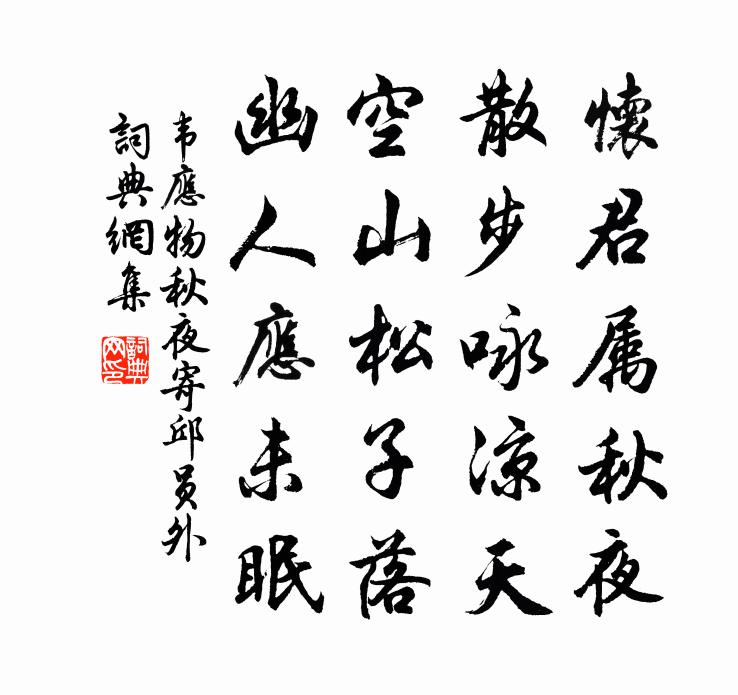 懷君属秋夜
散步咏凉天
空山松子落
幽人應未眠
韦應物秋夜寄邱员外
詞典網集
詞典网印